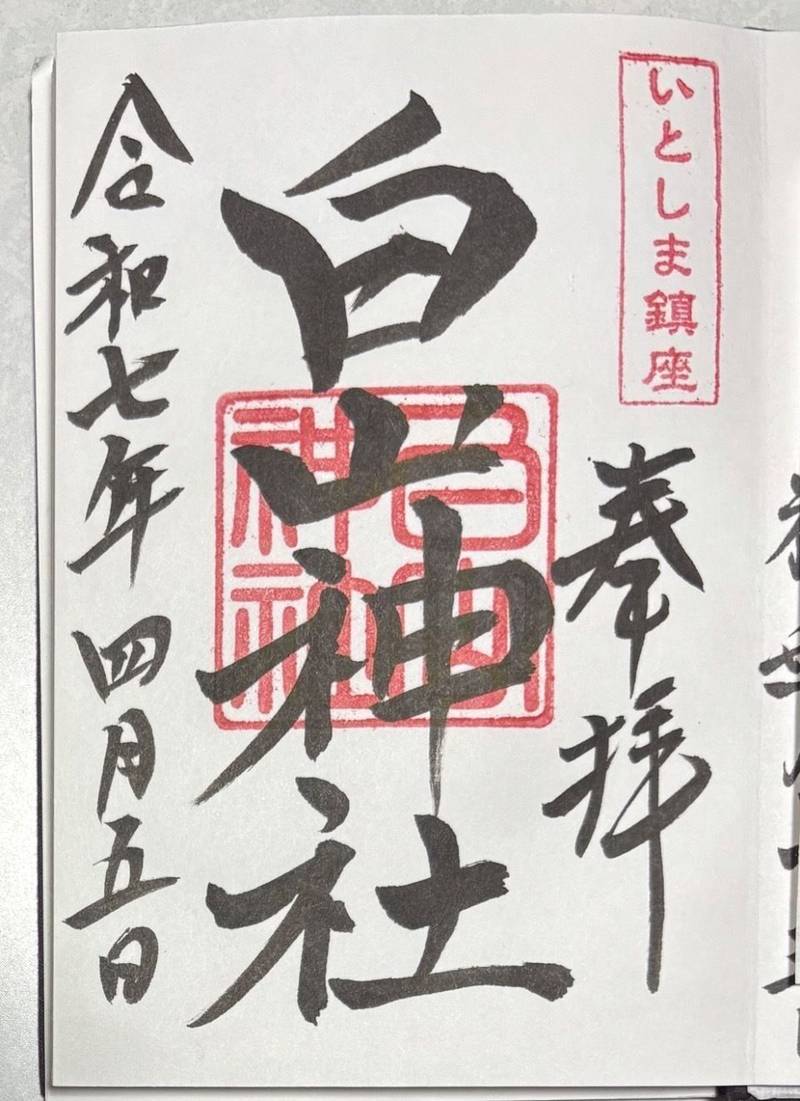 いとしま鎮座
奉拝
白山神社
白山神社
令和七年 四月五日